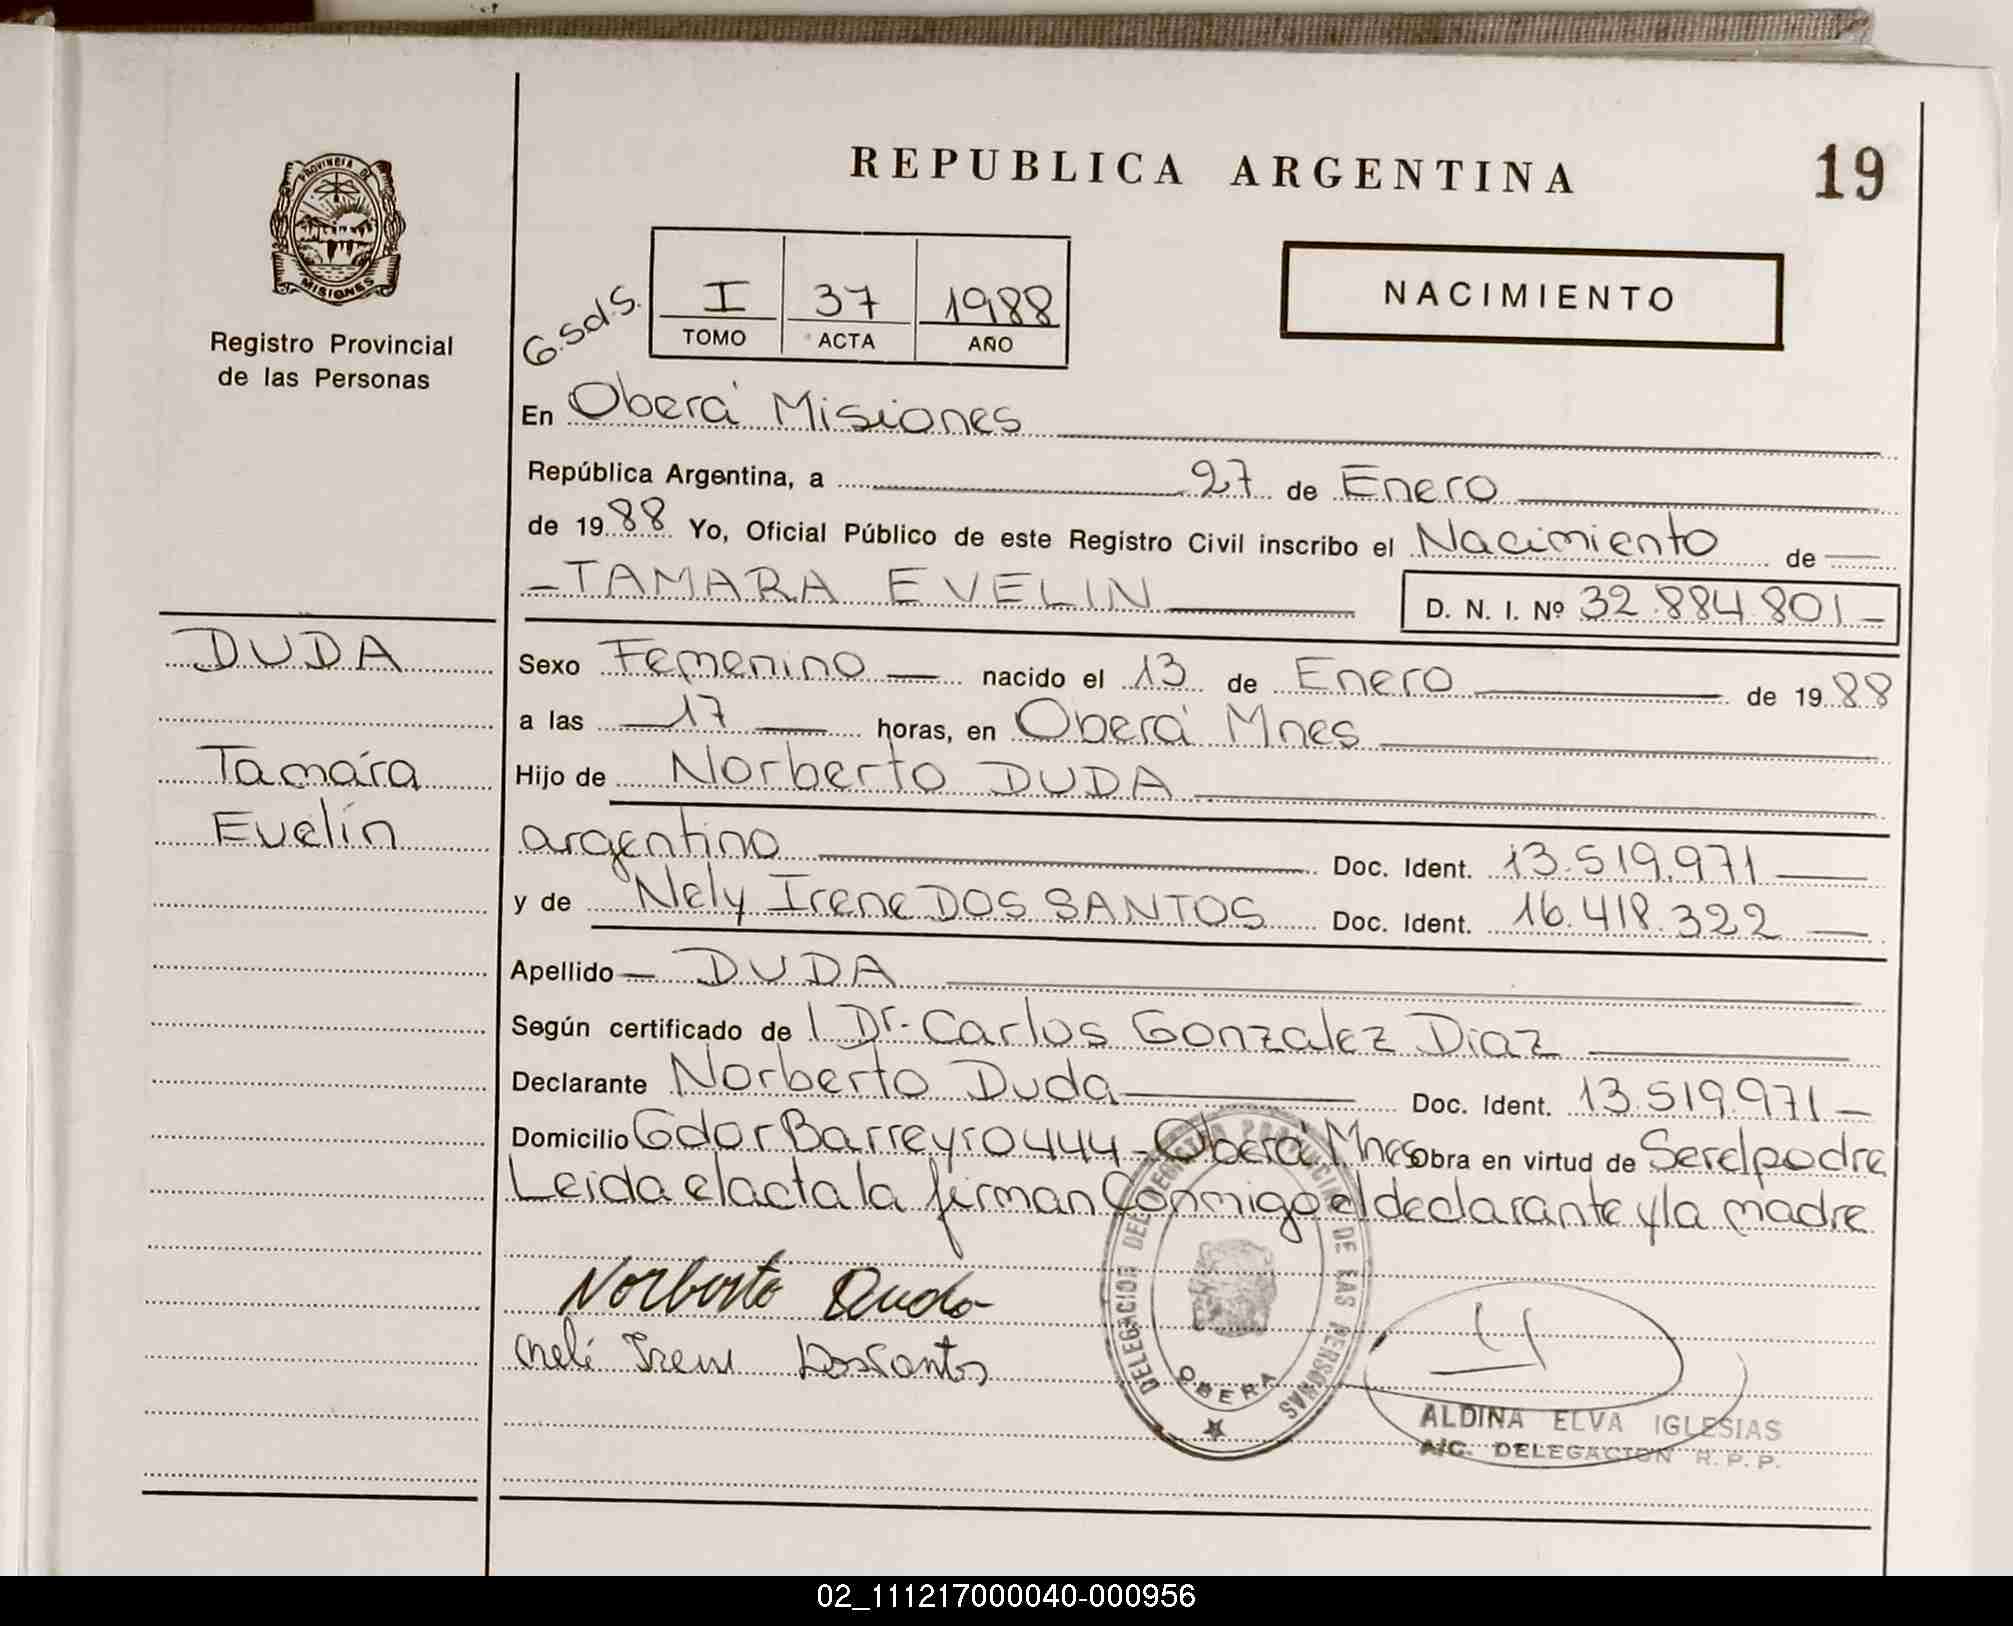 REPUBLICA ARGENTINA
19
PROVINCIA DE
MISIONES
Registro Provincial
de las Personas
G.sds.
I 37 1988
TOMO ACTA AÑO
NACIMIENTO
En Oberá Misiones
República Argentina, a 27 de Enero
de 1988 Yo, Oficial Público de este Registro Civil inscribo el Nacimiento de
-TAMARA EVELIN
D. N. I. Nº 32.884.801-
DUDA
Tamára
Evelín
Sexo Femenino nacido el 13 de Enero de 1988
a las 17 horas, en Oberá Mnes
Hijo de Norberto DUDA
argentino Doc. Ident. 13.519.971
y de Nely Irene DOS SANTOS Doc. Ident. 16.418.322
Apellido DUDA
Según certificado de l Dr. Carlos Gonzalez Diaz
Declarante Norberto Duda Doc. Ident. 13.519.971-
Domicilio Gdor Barreyro 444-Oberá Mnes Obra en virtud de Ser el padre
Leida el acta la firman Conmigo el declarante y la madre
Norberto Duda
Neli Irene Dos Santos
DELEGACION DEL REGISTRO PROVINCIAL DE LAS PERSONAS
OBERA
ALDINA ELVA IGLESIAS
A/C. DELEGACION R. P. P.
02_111217000040-000956